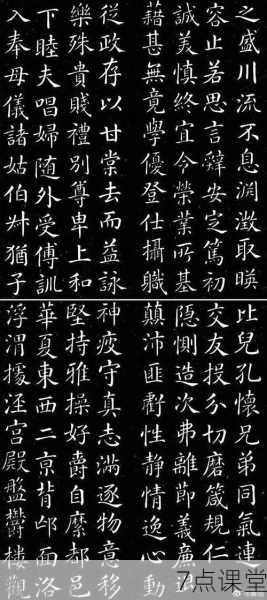 之盛川流不息淵澂取暎
容止若思言辭安定篤初
誠美慎終宜令榮業所基
藉甚無竟學優登仕攝職
從政存以甘棠去而益詠
樂殊貴賤禮別尊卑上和
下睦夫唱婦随外受傅訓
入奉母儀諸姑伯叔猶子
比兒孔懷兄弟同氣連
交友投分切磨箴規仁
隱惻造次弗離節義廉
顛沛匪虧性靜情逸心動
神疲守真志滿逐物意移
堅持雅操好爵自縻都邑
華夏東西二京背邙面洛
浮渭據涇宮殿盤欝樓觀
7点课堂